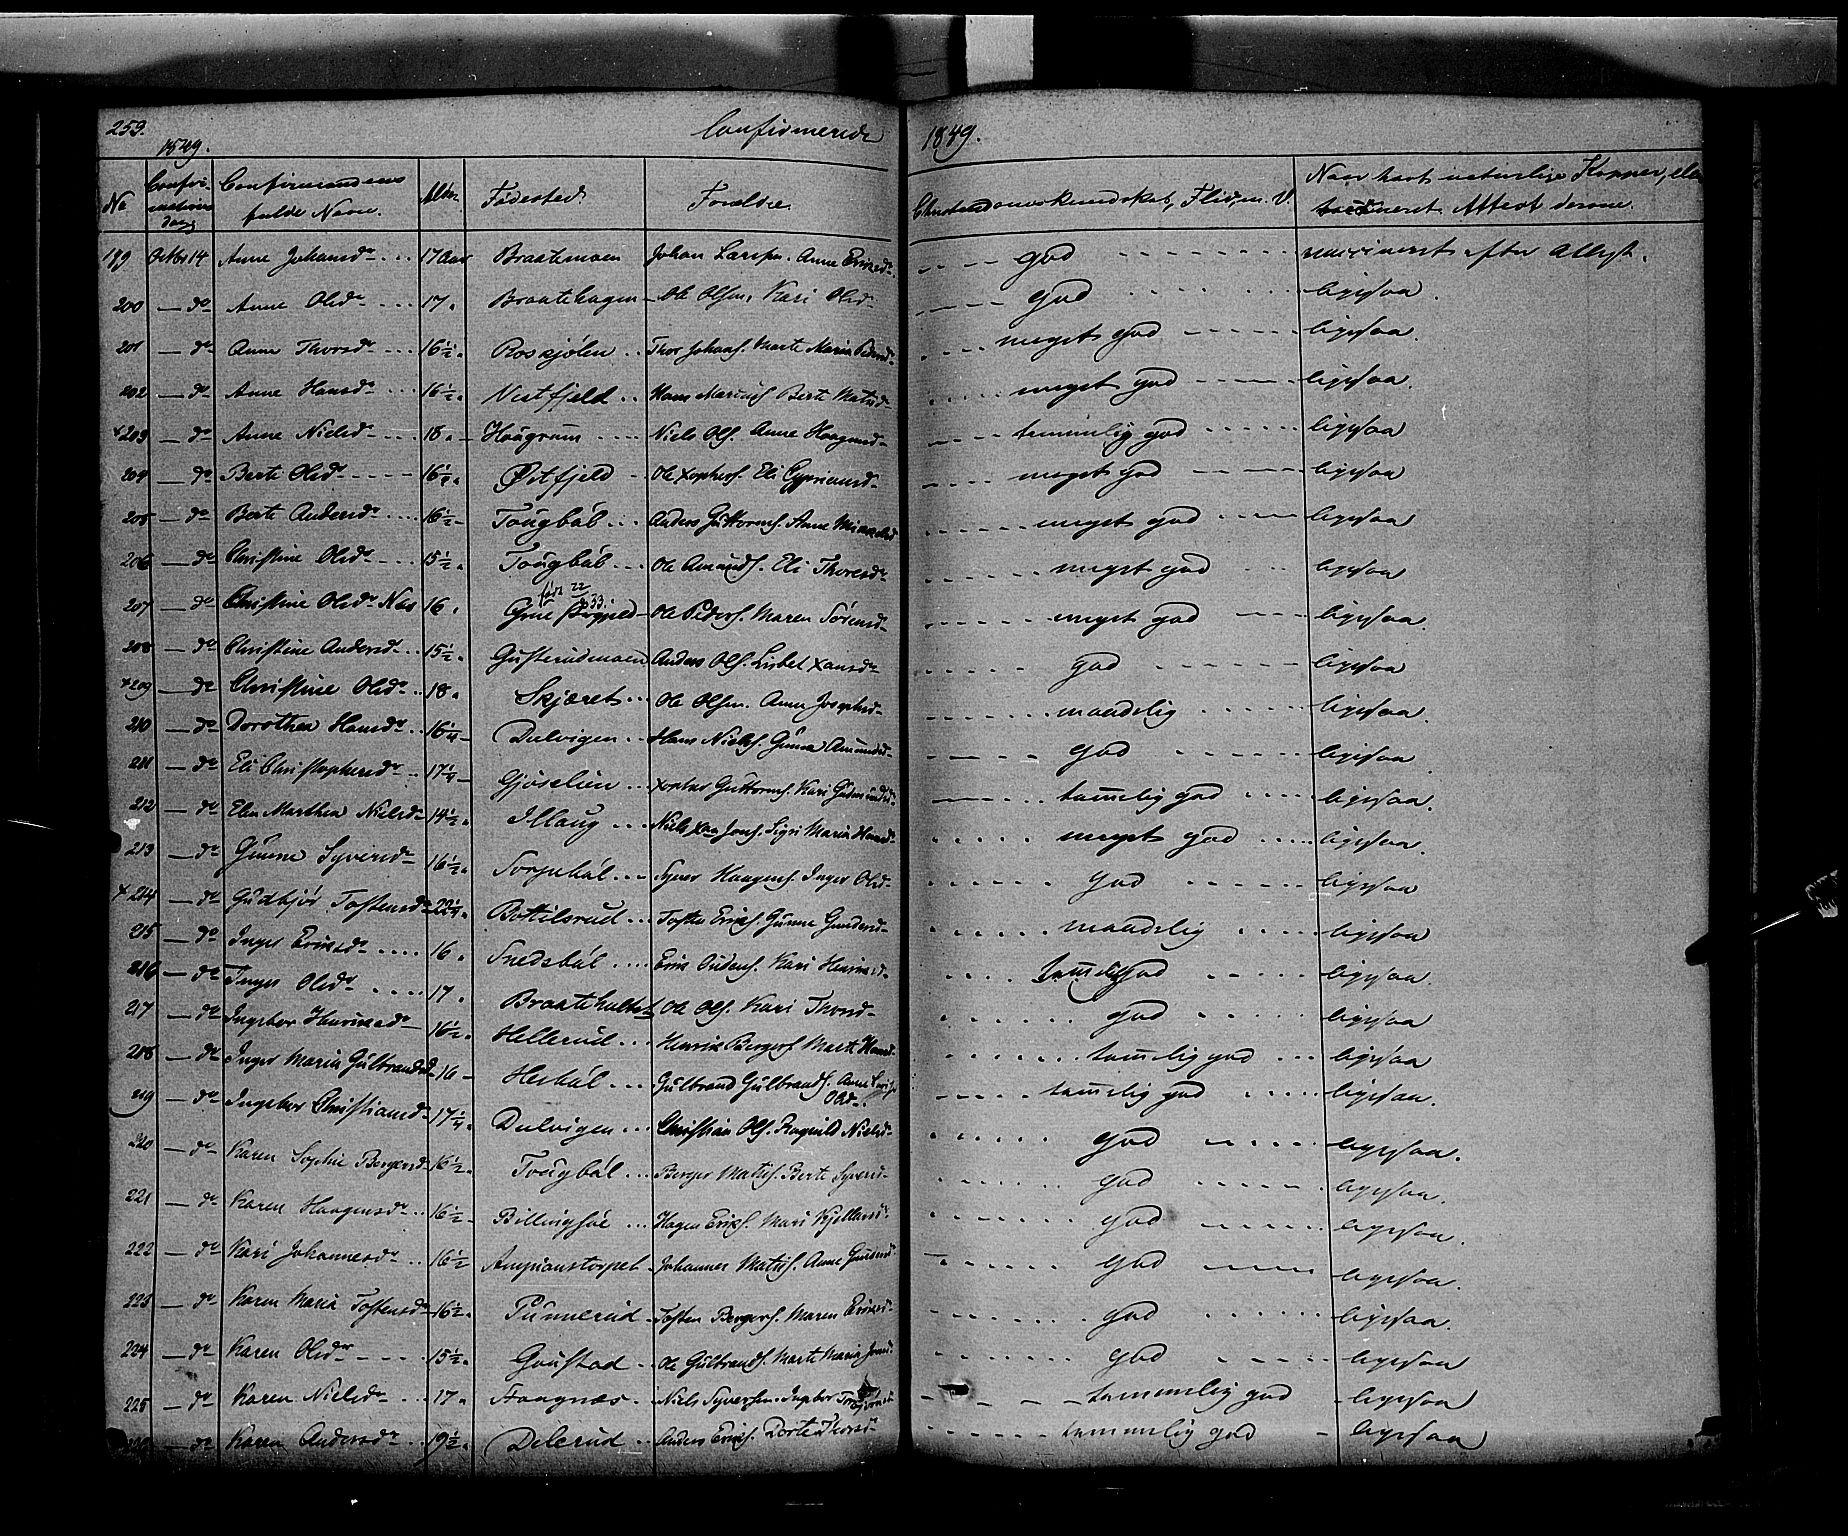 259. Confirmerede 1849.
1849.
No Confirmations dag Confirmandens fulde Navn. Alder Fødested Forældre. Christendomskundskab, Flid, m. V. Naar havt naturlige Kopper, eller vaccineret. Attest derom.
199 Octbr 14 Anne Johansdr 17 Aar Braatemoen Johan Larsen. Anne Ericsdr god vaccineret efter Attest.
200 — do Anne Olsdr 17. Braatehagen Ole Olsen. Kari Olsdr god ligesaa.
201 — do Anne Thorsdr 16½. Roskjølen Thor Johans. Marte Maria Pedersdr meget god ligesaa.
202 — do Anne Hansdr 16½. Vestfjeld Hans Berte Matsdr meget god ligesaa.
+203 — do Anne Nielsdr 18. Haugrum Niels Ols. Anne Haagensd temmelig god ligesaa
204 — do Berte Olsdr 16½. Østfjeld Ole Xophers. Eli meget god ligesaa
205 — do Berte Andersdr 16½ Tougbøl Anders Guttorms. Anne meget god ligesaa
206 — do Christine Olsdr 15½. Tougbøl Ole Amunds. Eli Thoresdr meget god ligesaa
207 — do Christine Olsdr Næs 16. født 22/ 33. Ole Peders. Maren Sørensd meget god ligesaa.
208 — do Christine Andersdr 15½. Gusterudmoen Anders Ols. Lisbet god ligesaa
+209 — do Christine Olsdr 18. Skjæret Ole Olsen. Anne Josephsd maadelig ligesaa.
210 — do Dorothea Hansdr 16¼ Dulvigen Hans Niels. Guna Amundsd god ligesaa.
211 — do Eli Christophersdr 17¼ Gjøselien Xopher Guttorms. Kari Gudmundsd tamelig god ligesaa.
212 — do Elen Marthea Nielsd 14½. Illaug Niels Sigri Maria Hansd meget god ligesaa.
213 — do Gunne Syversdr 16½. Syver Haagens. Inger Olsd god ligesaa
+214 — do Gudbjør Tostensd 22¼. Bottilsrud Tosten Erics. Gunne Gundersd maadelig ligesaa
215 — do Inger Ericsdr 16. Snedsbøl Eric Audens. Kari Henricsd tamelig god ligesaa
216 — do Inger Olsdr 17. Braateholtet Ole Ols. Kari Thorsd god ligesaa
217 — do Ingebor Henricsd 16½. Hellerud Henric Bergers. Marte Hansd tamelig god ligesaa
218 — do Inger Maria Gulbrandsd 16 Hesbøl Gulbrand Gulbrands. Anne Olsd tamelig god ligesaa.
219 — do Ingebor Christiansd 17¼. Dulvigen Christian Ols. Ragnild Nielsd god ligesaa.
220 — do Karen Sophie Bergersd 16½. Tougbøl Berger Mats. Berte Syversd god ligesaa.
221 — do Karen Haagensdr 16½ Hagen Erics. Mari Kjellsd god ligesaa.
222 — do Kari Johannesdr 16½ Ampianstorpet Johannes Mats. Anne god ligesaa.
223 — do Karen Maria Tostensdr 16½. Tunnerud Tosten Bergers. Maren Ericsd god ligesaa.
224 — do Karen Olsdr 15½. Goustad Ole Gulbrands. Marte Maria god ligesaa
225 — do Karen Nielsdr 17. Stangnæs Niels Syversen. Ingebor temmelig god ligesaa
— do Karen Andersdr 19½. Delerud Anders Erics. Dorte Thorsd temmelig god ligesaa